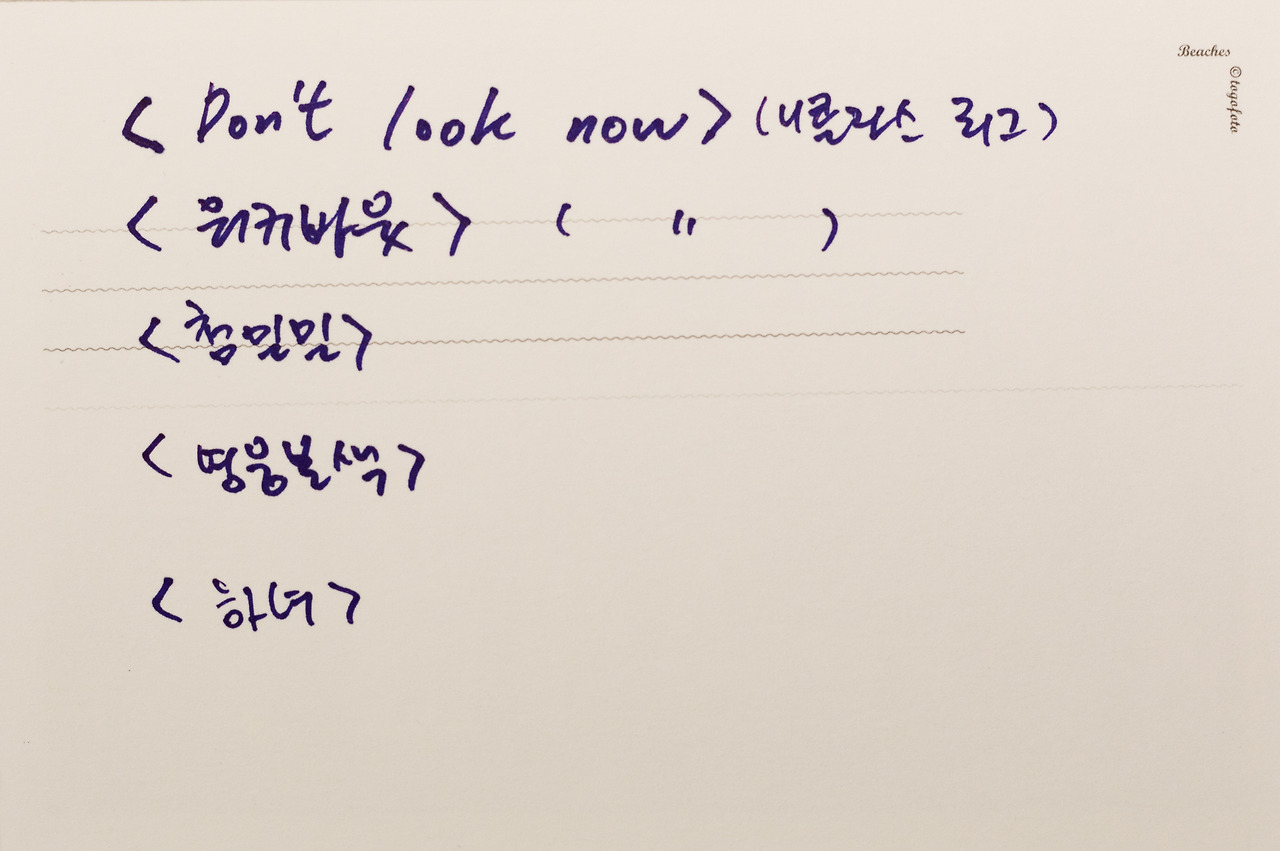 Beaches
©togofoto
< Don't look now > (니콜라스 뢰그)
< 워커바웃 > ( 〃 )
< 첨밀밀 >
< 영웅본색 >
< 하녀 >